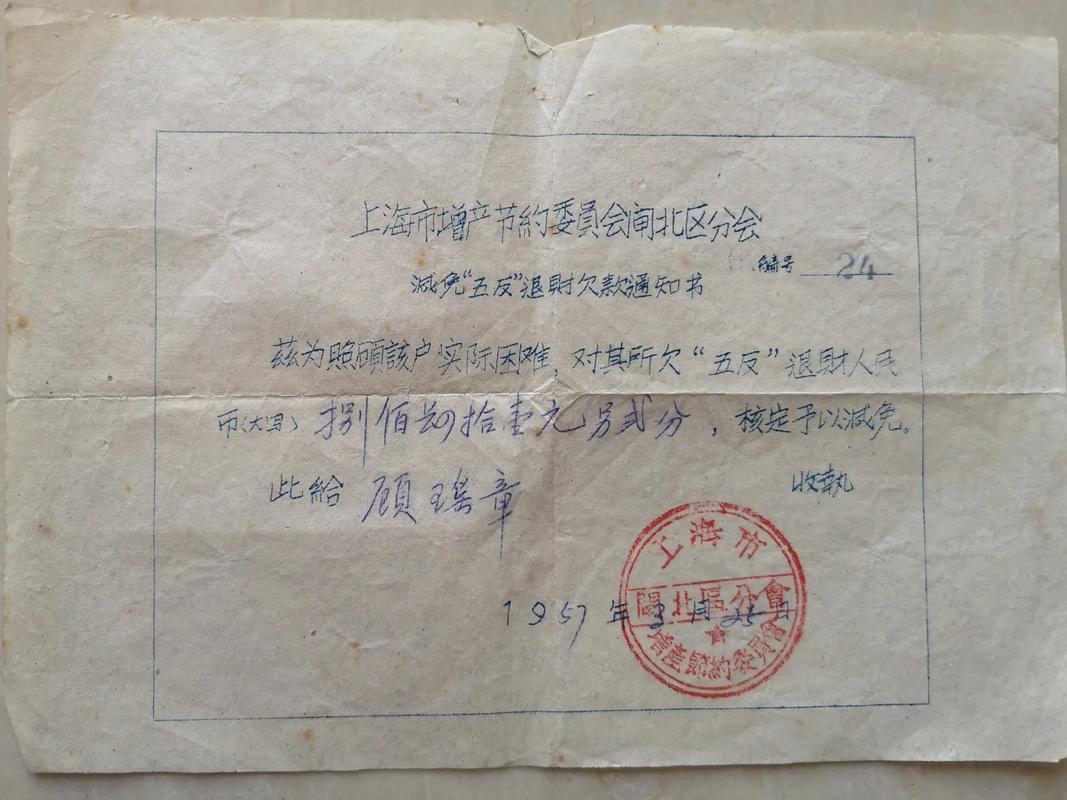 上海市增产节約委員会闸北区分会
編号 24
減免“五反”退財欠款通知书
茲为照顧該户实际困难，对其所欠“五反”退財人民
币（大写）捌佰 拾壹元另弍分，核定予以減免。
此給 顧瑤章 收執
1957年3月25日
上海市
閘北區分會
增產節約委員會